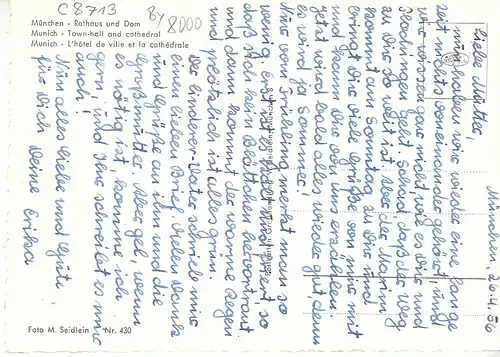 C 8713
By 8000
München - Rathaus und Dom
Munich - Town-hall and cathedral
Munich - L'hôtel de ville et la cathédrale
München, 26.4.56
Liebe Mutter,
nun haben wir wieder eine lange
Zeit nichts voneinander gehört, und
wir wissen gar nicht, wie es Dir und
geht. Schade, daß der Weg
zu Dir so weit ist. Aber der Martin
kommt am Sonntag zu Dir und
bringt Dir viele Grüße von mir mit
und kann Dir von uns erzählen.
Jetzt wird bald alles wieder gut, denn
es wird ja Sommer!
Nur vom Frühling merkt man so
wenig. Erst ist es kalt und friert so
daß sich kein Blättchen hervortraut
und dann kommt der warme Regen
und plötzlich ist alles grün.
Der Lindener-Vater schrieb mir
einen lieben Brief. Vielen Dank
und Grüße an ihn und die
Großmutter. Aber gel, wenn
es nötig ist, komme ich
gern und Ihr schreibt es mir
auch!
Nun alles Liebe und Gute
für Dich Deine Erika
Foto M. Seidlein Nr. 430